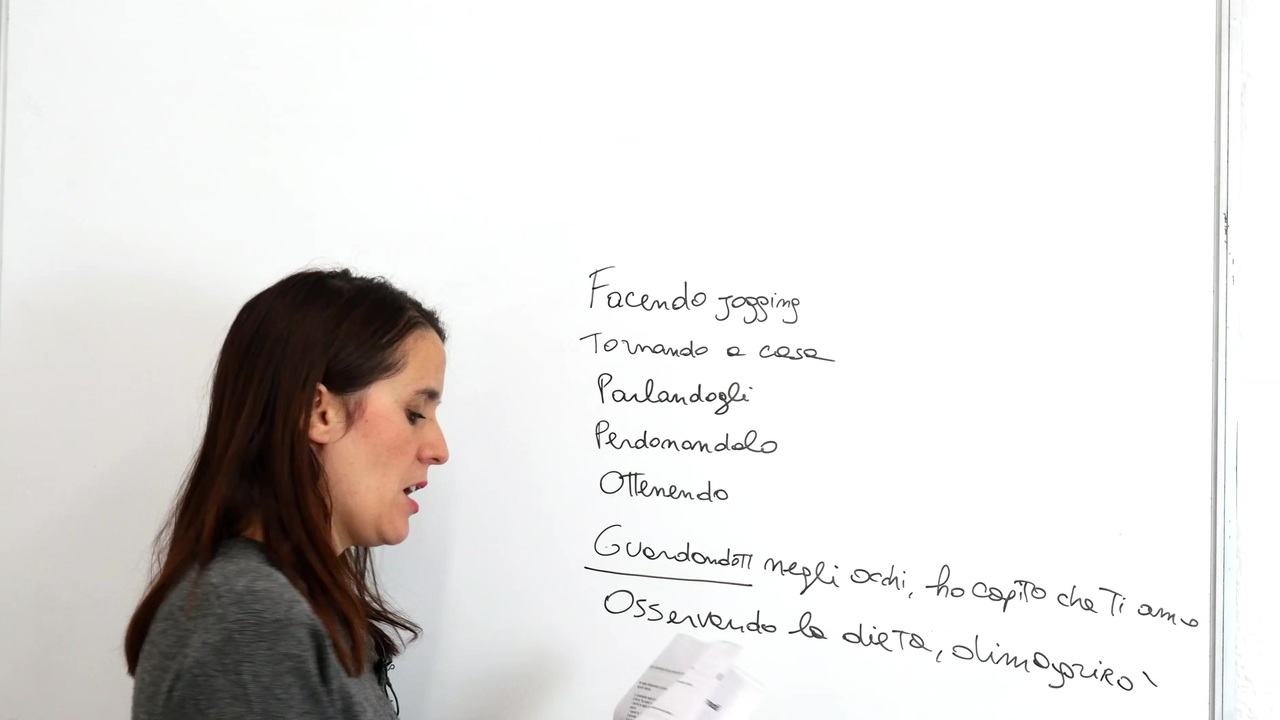 Facendo jogging
Tornando a casa
Parlandogli
Perdonandolo
Ottenendo
Guardandoti negli occhi, ho capito che Ti amo
Osservando la dieta, dimagrirò